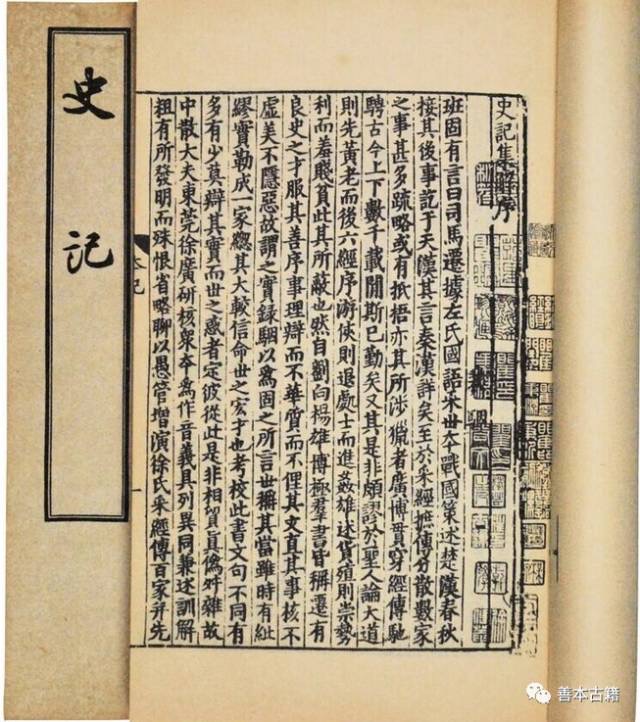 史記
史記集解序
班固有言曰司馬遷據左氏國語采丗本戰國策述楚漢春秋
接其後事訖于天漢其言秦漢詳矣至於采經摭傳分散數家
之事甚多疏略或有抵梧亦其所涉獵者廣博貫穿經傳馳
騁古今上下數千載閒斯已勤矣又其是非頗謬於聖人論大道
則先黃老而後六經序游俠則退處士而進姦雄述貨殖則崇勢
利而羞賤貧此其所蔽也然自劉向楊雄博極羣書皆稱遷有
良史之才服其善序事理辯而不華質而不俚其文直其事核不
虛美不隱惡故謂之實録駰以爲固之所言世稱其當雖時有紕
繆實勒成一家緫其大較信命世之宏才也考校此書文句不同有
多有少莫辯其實而世之惑者定彼從此是非相貿眞僞舛雜故
中散大夫東莞徐廣研核衆本爲作音義具列異同兼述訓解
粗有所發明而殊恨省略聊以愚管增演徐氏采經傳百家幷先
一
善本古籍